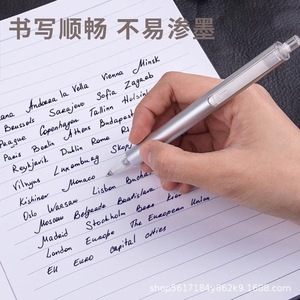 书写顺畅 不易渗墨
Andorra la Vella Vienna Minsk
Brussels Sarajevo Sofia Zagreb
Prague Copenhagen Tallinn Helsinki
Paris Berlin Athens Budapest
Reykjavik Dublin Rome
Vilnyus Luxembourg
Kishinev Monaco
Oslo Warsaw Lisbon
Moscow Belgrade Bratislava
Madrid Stockholm Bern Kiev
London Europe The European Union
EU Euro capital cities